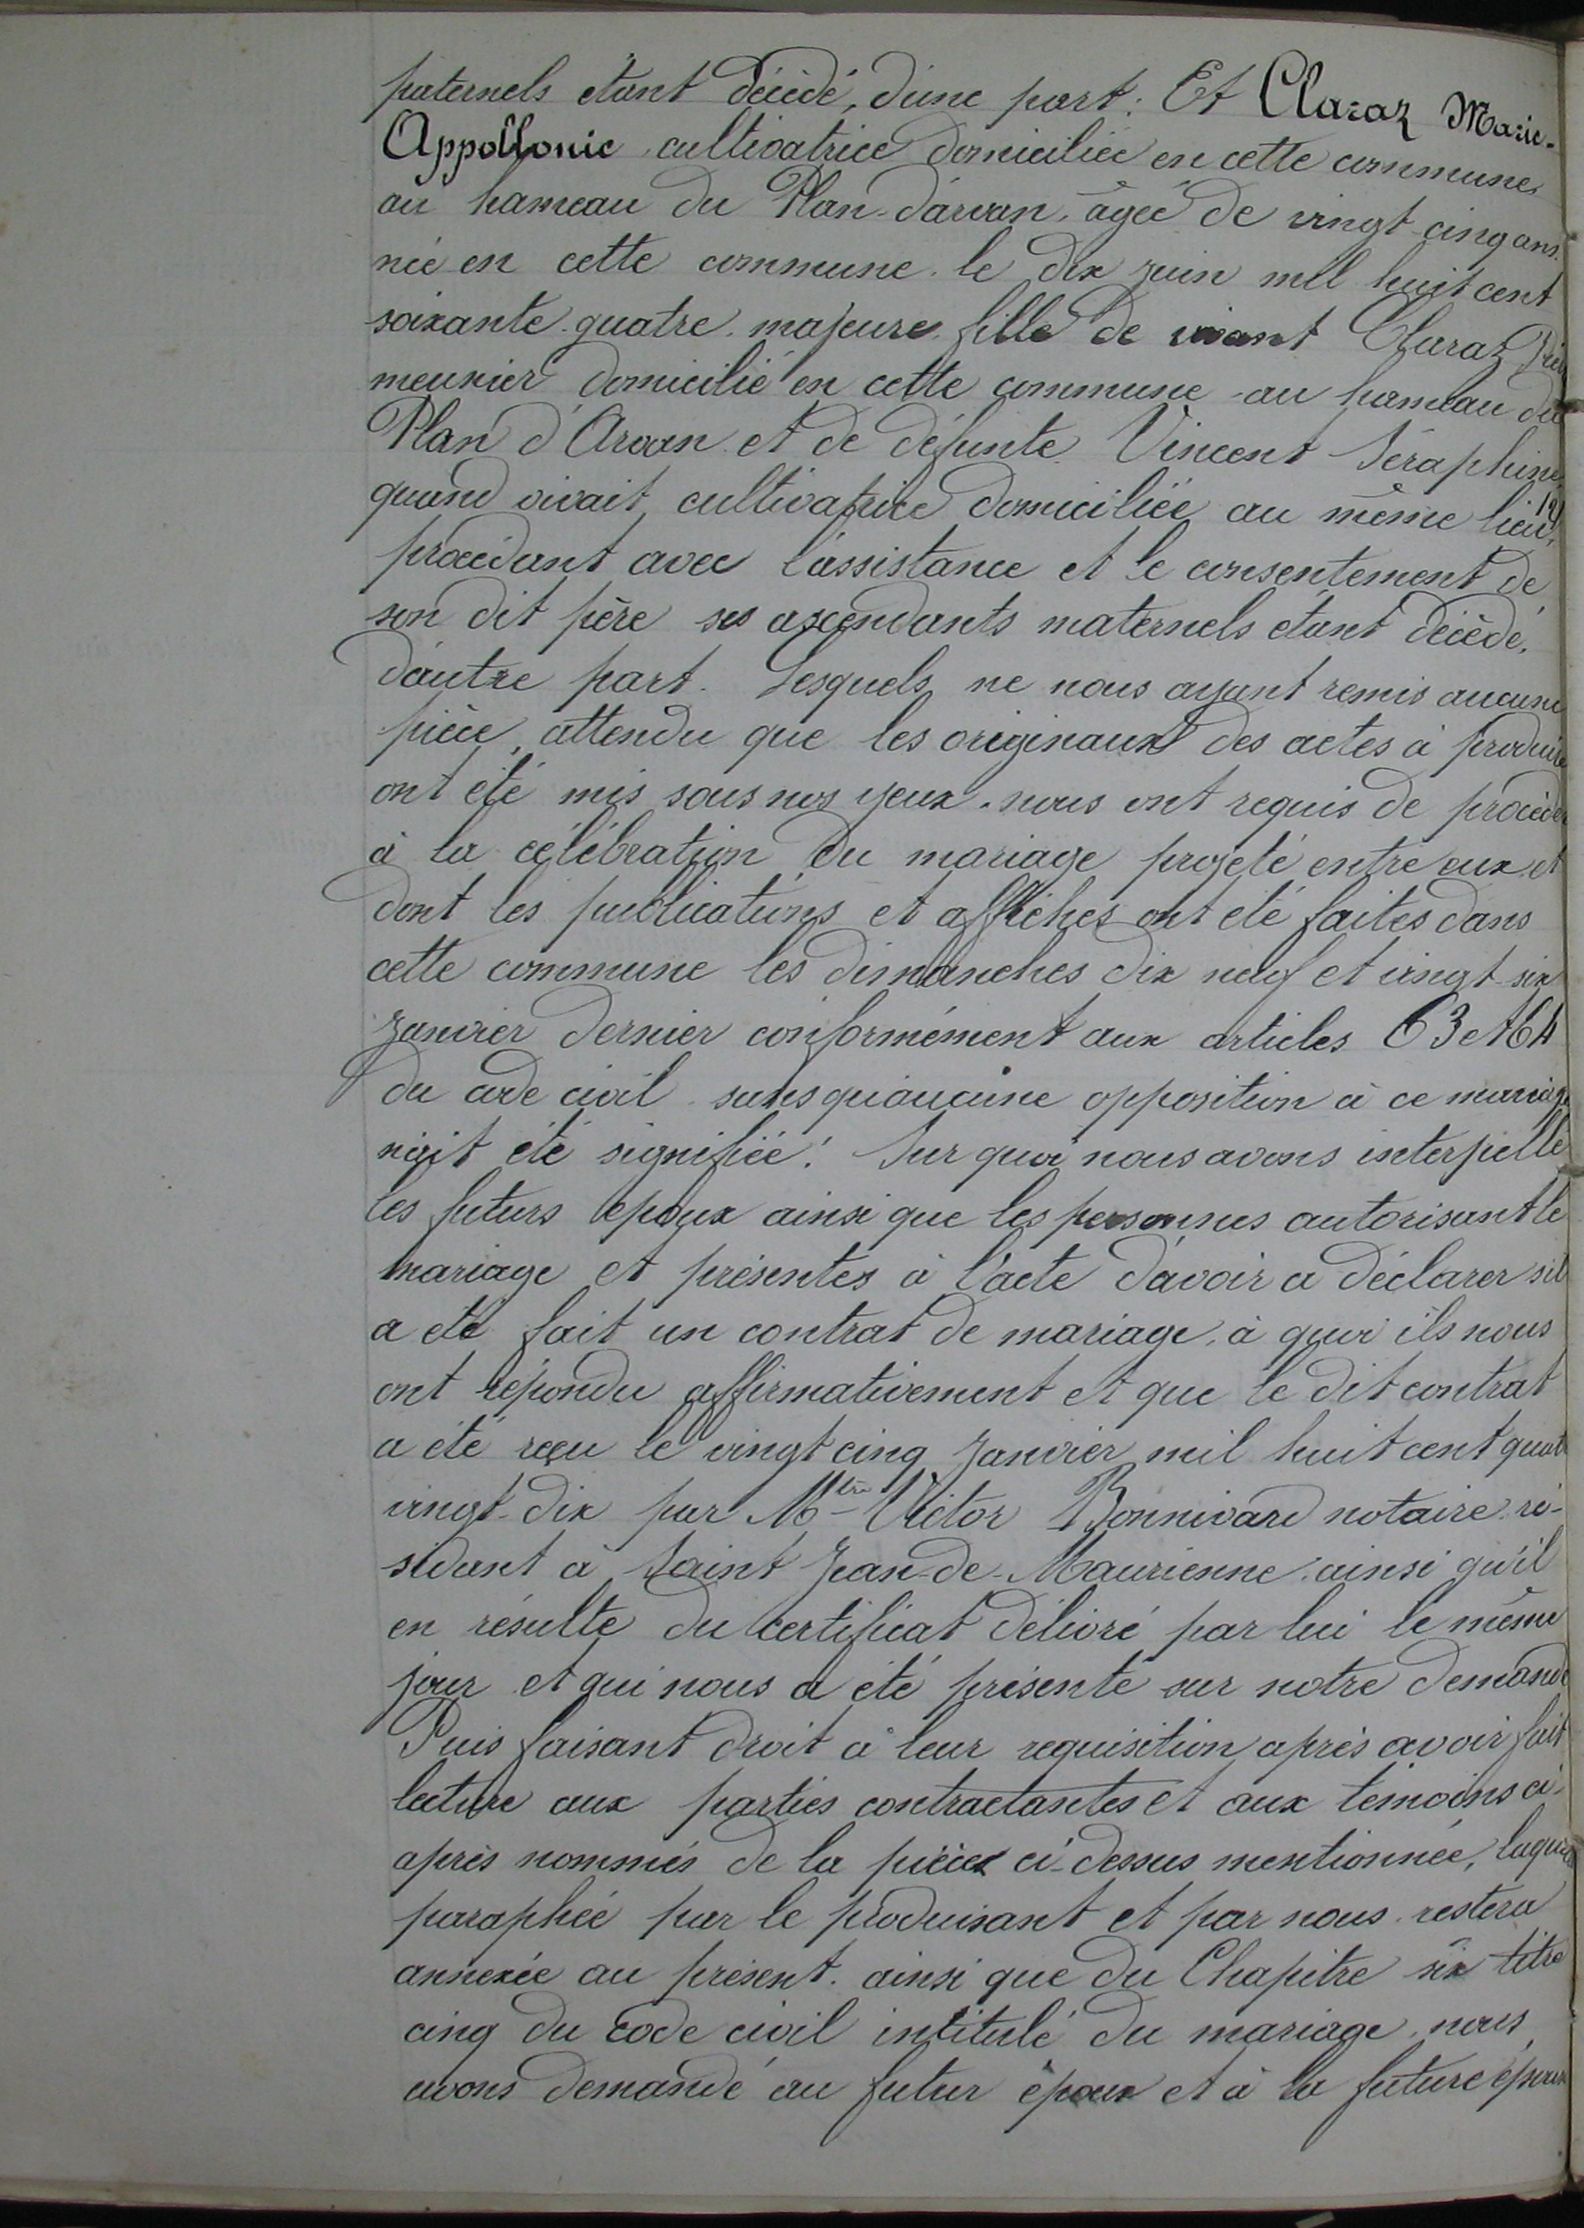 paternels étant décédé, d'une part: Et Claraz Marie-
Appollonie cultivatrice domiciliée en cette commune
au hameau du Plan-d'arvan, âgée de vingt-cinq ans
née en cette commune le dix juin mil huit cent
soixante-quatre, majeure fille de vivant Claraz
meunier domicilié en cette commune au hameau du
Plan d'Arvan et de défunte Vincent Séraphine
quand vivait cultivatrice domiciliée au même lieu,
procédant avec l'assistance et le consentement de
son dit père ses ascendants maternels étant décédé,
d'autre part. Lesquels ne nous ayant remis aucune
pièce, attendu que les originaux des actes à produire
ont été mis sous nos yeux. nous ont requis de procéder
à la célébration du mariage projeté entre eux et
dont les publications et affiches ont été faites dans
cette commune les dimanches dix neuf et vingt-six
Janvier dernier conformément aux articles 63 et 64
du code civil sans qu'aucune opposition à ce mariage
n'ait été signifiée. Sur quoi nous avons interpellé
les futurs époux ainsi que les personnes autorisant le
mariage et présentes à l'acte d'avoir a déclarer s'il
a été fait un contrat de mariage, à quoi ils nous
ont répondu affirmativement et que le dit contrat
a été reçu le vingt cinq Janvier mil huit cent quat
vingt-dix par Mtre Victor Bonnivard notaire ré-
sidant à Saint Jean-de-Maurienne ainsi qu'il
en résulte du certificat délivré par lui le même
jour et qui nous a été présenté sur notre demande
Puis faisant droit à leur requisition après avoir fait
lecture aux parties contractantes et aux témoins ci-
après nommés de la pièce ci-dessus mentionnée, laquelle
paraphée par le produisant et par nous restera
annexée au présent. ainsi que du Chapitre six titre
cinq du code civil intitulé du mariage nous
avons demandé au futur époux et à la future épouse